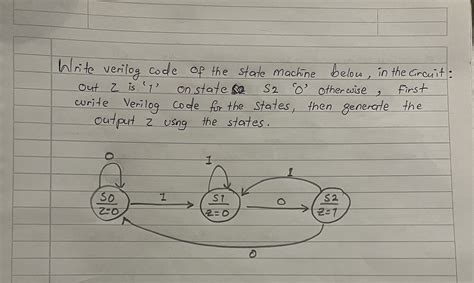 Write verilog code of the state machine below, in the circuit:
out Z is '1' on state S2 '0' otherwise, first
write Verilog code for the states, then generate the
output z usng the states.
0
1
1
S0
Z=0
1
S1
Z=0
0
S2
Z=1
0